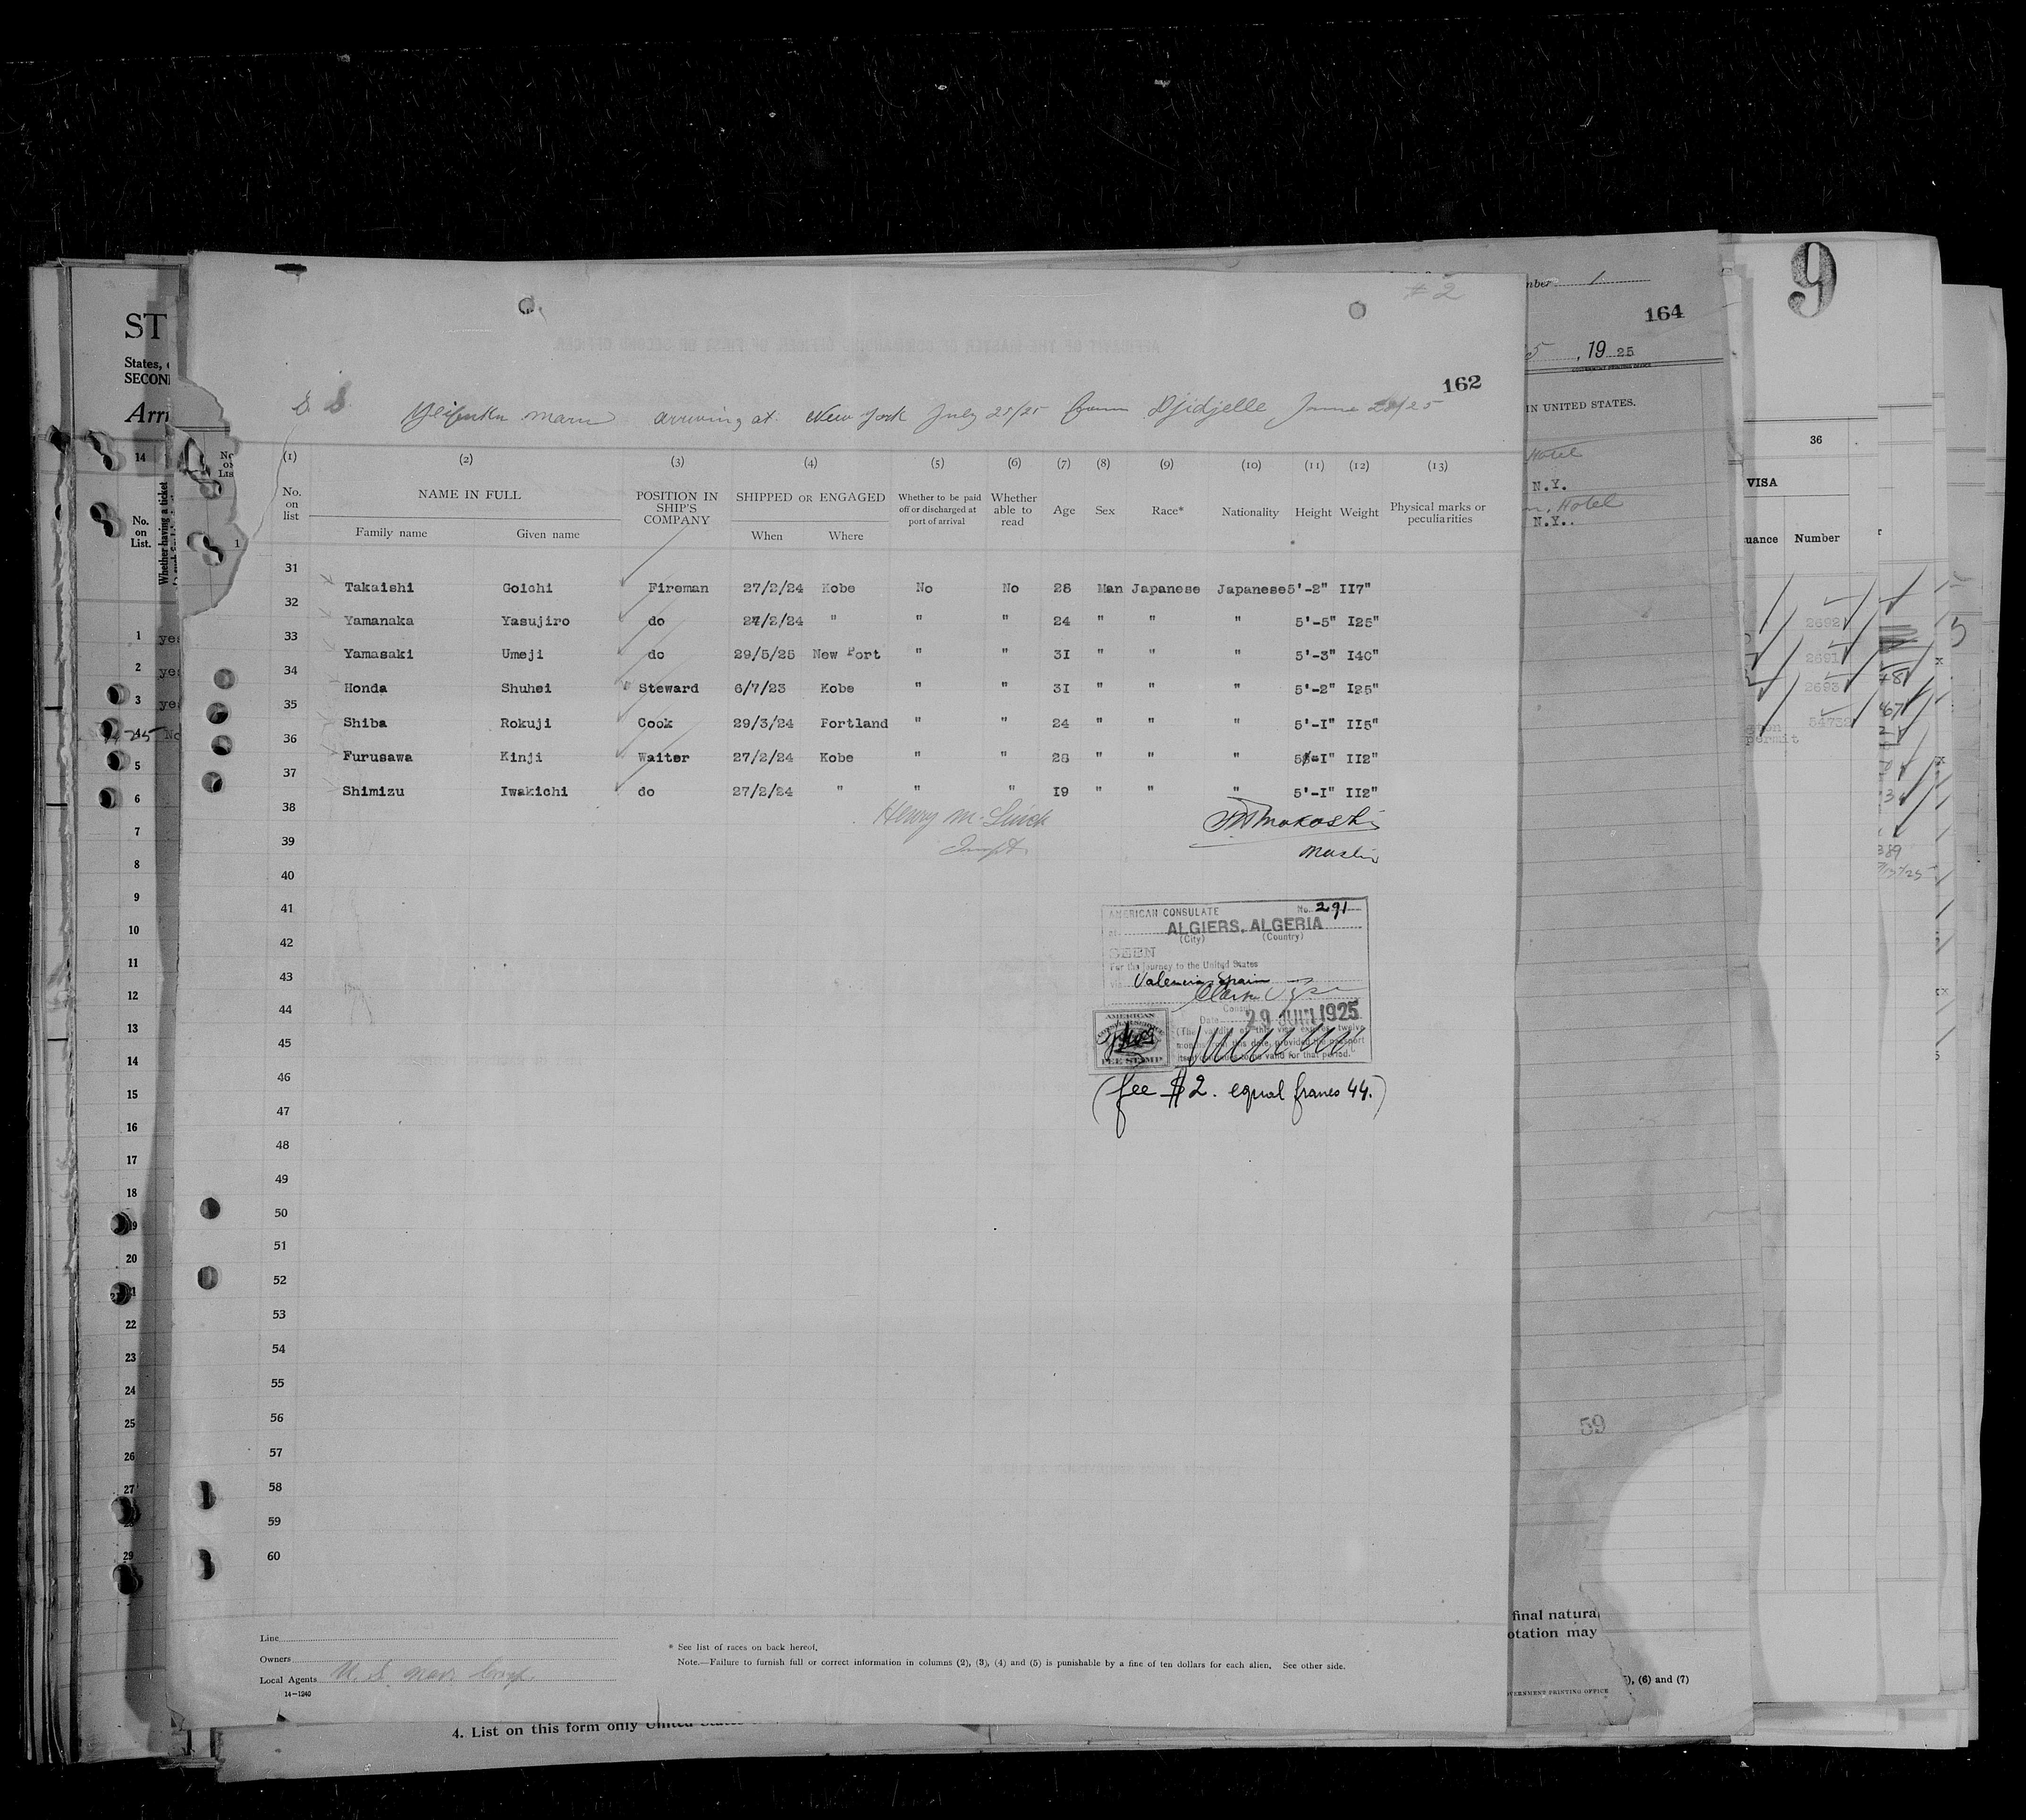 # 2
162
S. S. Maru arriving at New York July 25/25 from Djidjelle June 28/25
(1) (2) (3) (4) (5) (6) (7) (8) (9) (10) (11) (12) (13)
No. on list NAME IN FULL POSITION IN SHIP'S COMPANY SHIPPED OR ENGAGED Whether to be paid off or discharged at port of arrival Whether able to read Age Sex Race* Nationality Height Weight Physical marks or peculiarities
Family name Given name When Where
31
Takaishi Goichi Fireman 27/2/24 Kobe No No 28 Man Japanese Japanese 5'-2" II7"
32
Yamanaka Yasujiro do 27/2/24 " " " 24 " " " 5'-5" I25"
33
Yamasaki Umeji do 29/5/25 New Port " " 3I " " " 5'-3" I40"
34
Honda Shuhei Steward 6/7/23 Kobe " " 3I " " " 5'-2" I25"
35
Shiba Rokuji Cook 29/3/24 Portland " " 24 " " " 5'-I" II5"
36
Furusawa Kinji Waiter 27/2/24 Kobe " " 28 " " " 5'-I" II2"
37
Shimizu Iwakichi do 27/2/24 " " " I9 " " " 5'-I" II2"
38
Henry M.
39
Master
40
41
42
43
44
45
46
47
48
49
50
51
52
53
54
55
56
57
58
59
60
AMERICAN CONSULATE No. 291
at ALGIERS, ALGERIA
(City) (Country)
SEEN
For the journey to the United States
Valencia, Spain
Date 29 JUIN 1925
(The validity of this visa expires twelve
months from this date, provided the passport
itself continues to be valid for that period.)
AMERICAN
CONSULAR SERVICE
FEE STAMP
(fee $2. equal francs 44.)
Line
Owners
Local Agents U. S. Nav. Corp.
14-1240
* See list of races on back hereof.
Note.—Failure to furnish full or correct information in columns (2), (3), (4) and (5) is punishable by a fine of ten dollars for each alien. See other side.
4. List on this form only United States
ST
States,
SECON
Arri
14
No. on List.
Whether having a ticket
1 yes
2 yes
3 yes
4 No
5
6
7
8
9
10
11
12
13
14
15
16
17
18
19
20
21
22
23
24
25
26
27
29
1
164
, 19 25
IN UNITED STATES.
Hotel
N.Y.
Hotel
N.Y.
59
final natura
otation may
, (6) and (7)
VERNMENT PRINTING OFFICE
9
36
VISA
uance Number
2692
2691
2693
54732
permit
48
67
389